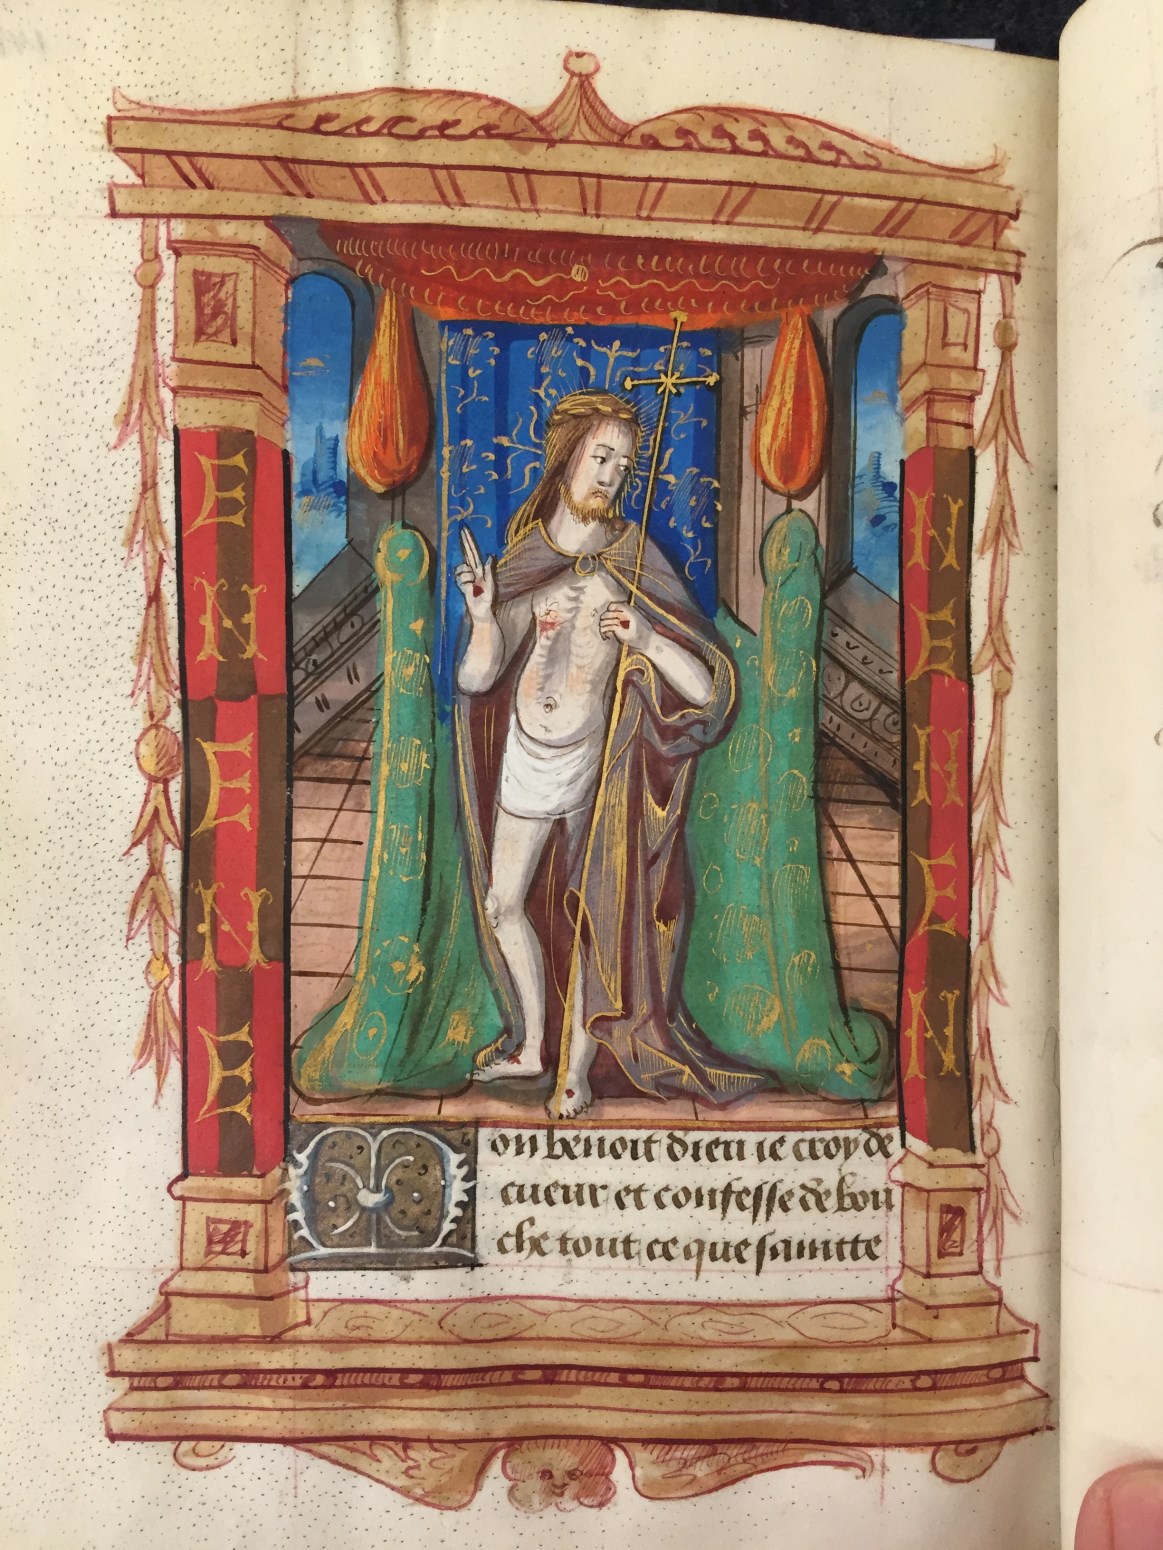 E
N
E
N
E
N
E
N
E
N
Mon benoit dieu ie croy de
cueur et confesse de bou
che tout ce que saincte